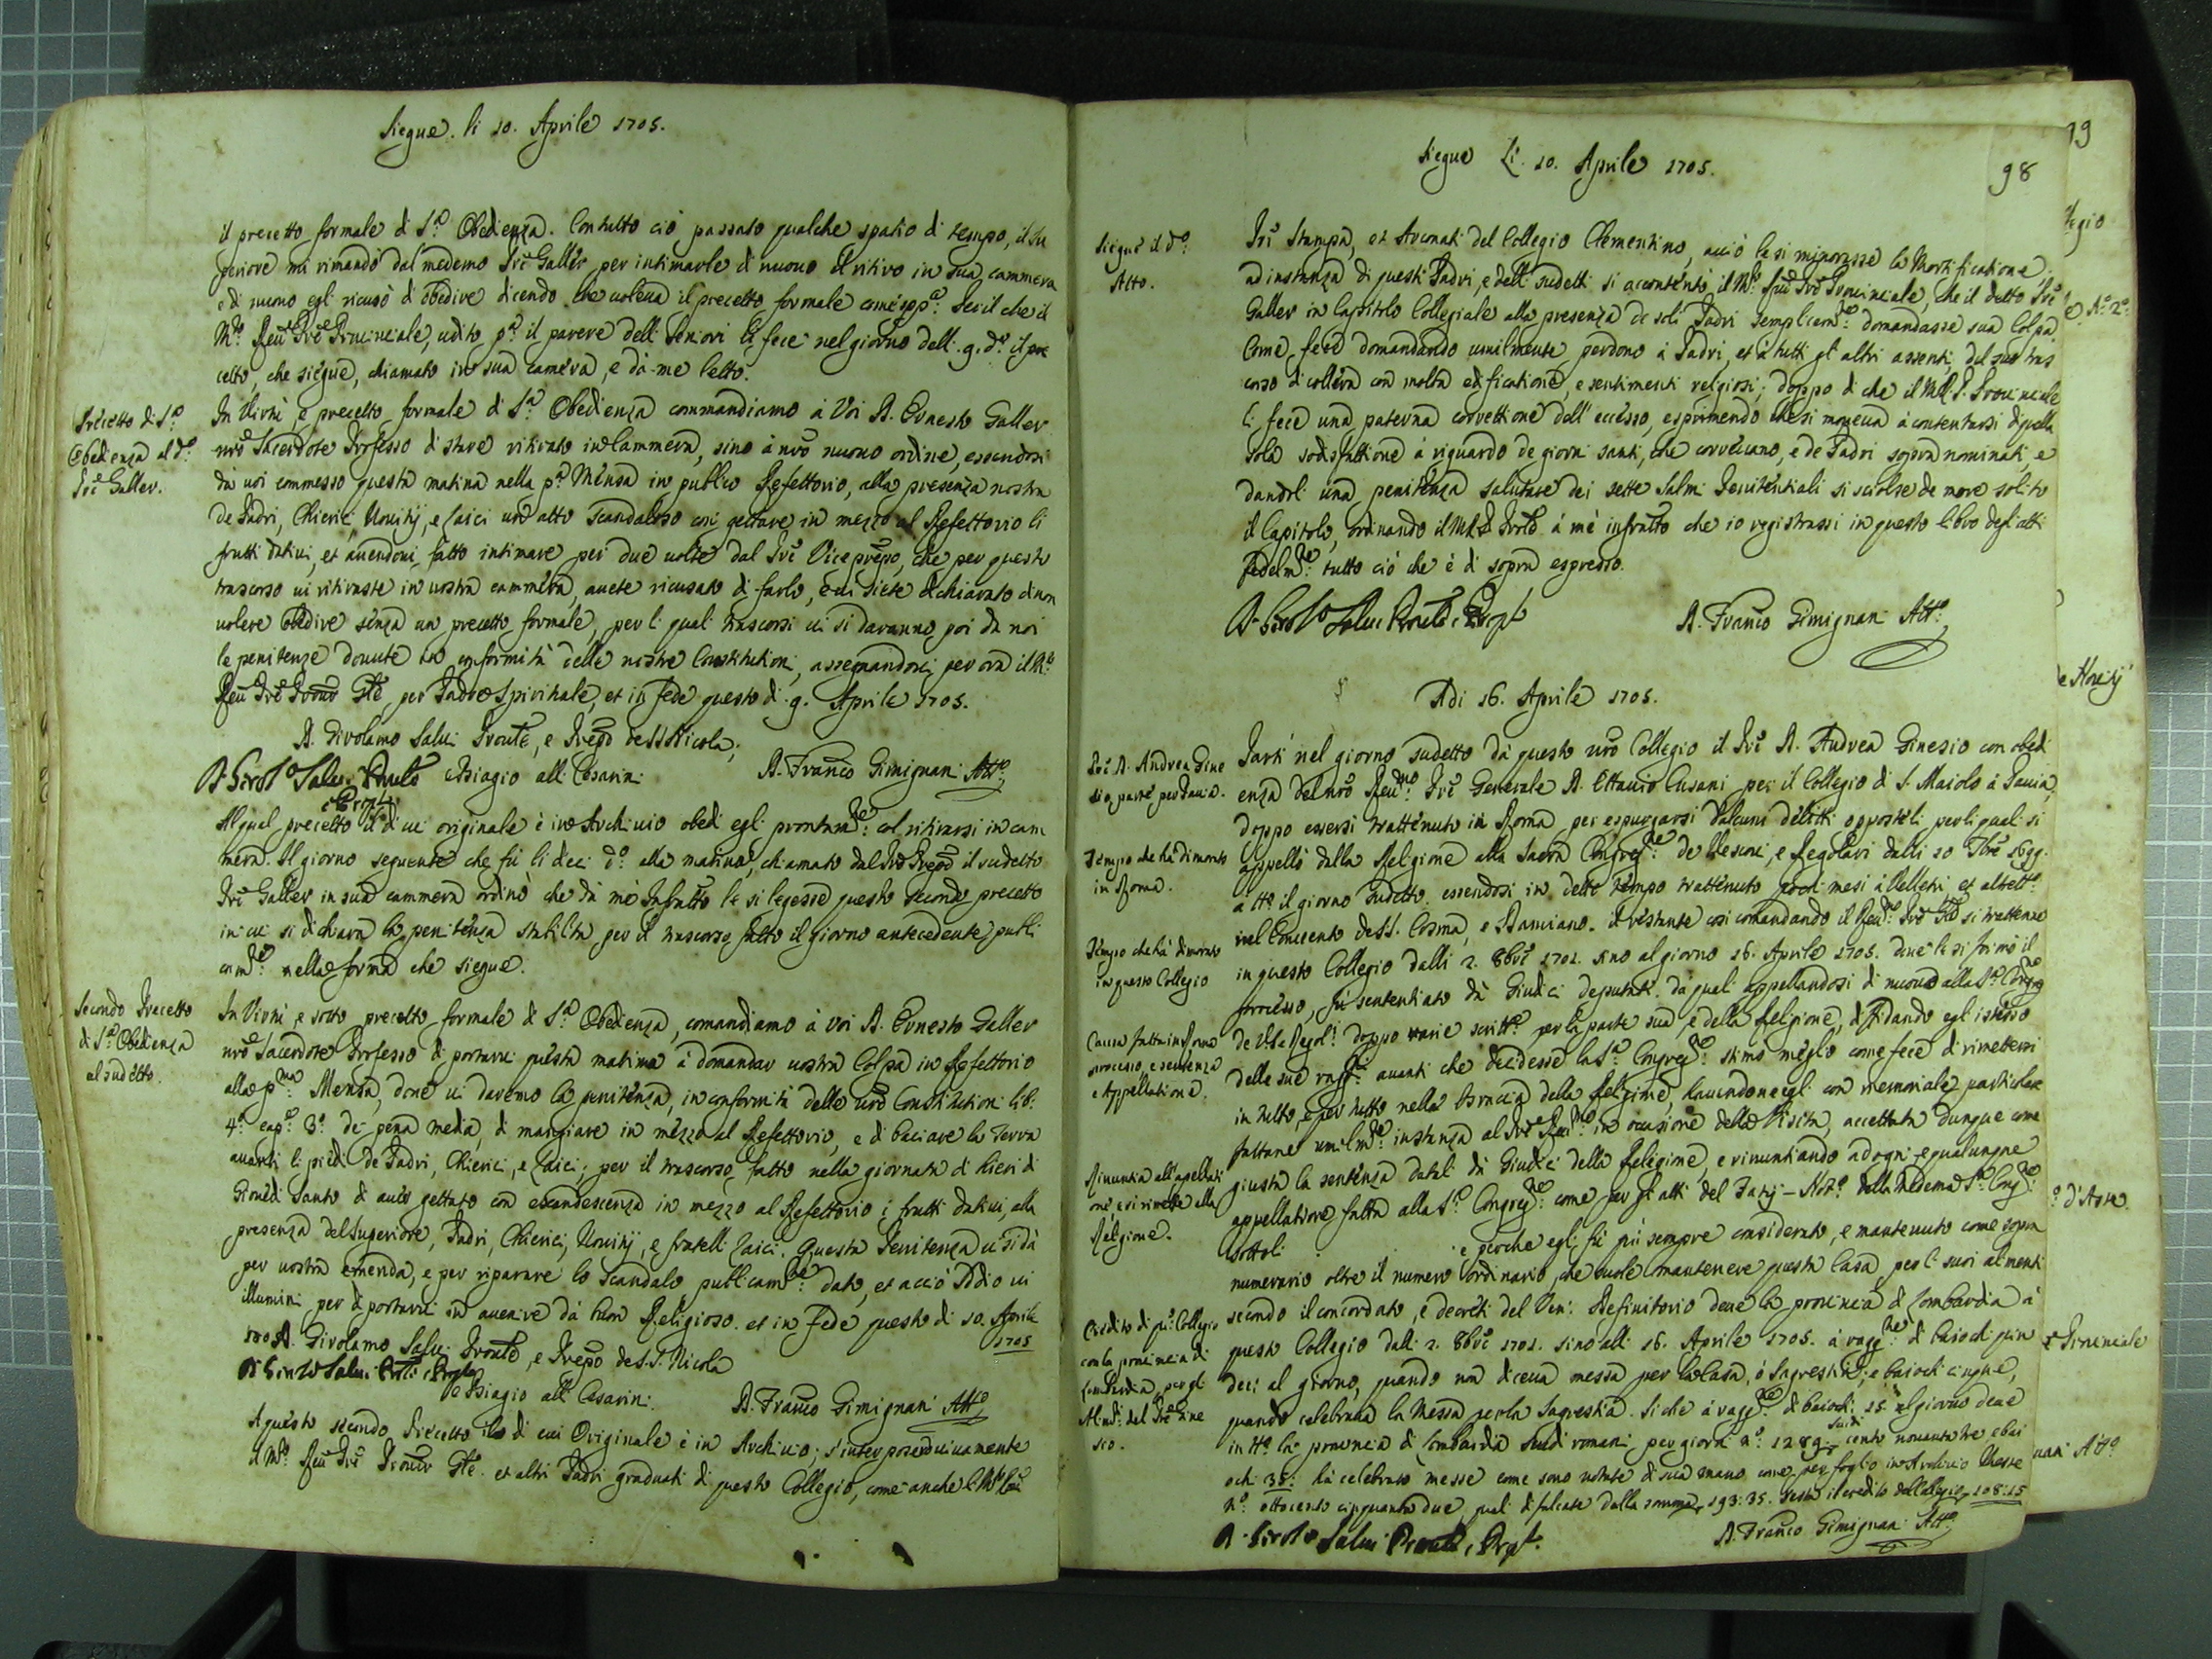 Siegue. li 10. Aprile 1705.
il precetto formale di S.ta Obedienza. Contutto ciò passato qualche spatio di tempo, il Su
periore mi rimandò dal medemo Pre Galler per intimarle di nuouo il ritiro in sua cammera
e di nuouo egli ricusò di obedire dicendo che uoleua il precetto formale come sop.a Per il che il
M.to Reu Pre Prouinciale, udito p.a il parere delli Seniori li fece nel giorno delli 9. d.o il pre
cetto, che siegue, chiamato in sua camera, e dà me letto.
Precetto di S.ta
Obedienza al d.o
Pre Galler.
In Virtù, e precetto formale di S.ta Obedienza commandiamo à Voi D. Ernesto Galler
nro Sacerdote Professo di stare ritirato in Cammera, sino à nro nuouo ordine, essendosi
dà uoi commesso questa matina nella p.a Mensa in publico Refettorio, alla presenza nostra
de Padri, Chierici, Nouitij, e Laici un atto scandaloso con gettare in mezzo al Refettorio li
frutti datiui, et auendoui fatto intimare per due uolte dal Pre Viceprepo, che per questo
trascorso ui ritiraste in uostra cammera, auete ricusato di farlo, e ui siete dichiarato di non
uolere obedire senza un precetto formale, per li quali trascorsi ui si daranno poi da noi
le penitenze douute in conformità delle nostre Constitutioni, assegnandoui per ora il M.to
Reu Pre Prour Gle, per Padre Spirituale, et in fede questo dì 9. Aprile 1705.
D. Girolamo Salui Proule, e Prepo de SS Nicola,
e Biagio alli Cesarini
D. Girol.o Salui Proule
e Prepto
D. Franco Gimignani Att.o
Al qual precetto il di cui originale è in Archiuio obedì egli prontam.te col ritirarsi in cam
mera. Il giorno seguente che fù li dieci d.o alla matina, chiamato dal Pre Prepo il sudetto
Pre Galler in sua cammera ordinò che dà mè Infratto le si legesse questo secondo precetto
in cui si dichiara la penitenza stabilita per il trascorso fatto il giorno antecedente publi
cam.te nella forma che siegue.
Secondo Precetto
di S.ta Obedienza
al sudetto.
In Virtù, e sotto precetto formale di S.ta Obedienza, comandiamo à voi D. Ernesto Galler
nro Sacerdote Professo di portarui questa matina à domandar uostra Colpa in Refettorio
alla p.ma Mensa, doue ui daremo la penitenza, in conformità delle nre Constitutioni lib.
4.o cap.o 3.o de pena media, di mangiare in mezzo al Refettorio, e di baciare la Terra
auanti li piedi de Padri, Chierici, e Laici, per il trascorso fatto nella giornata di hieri di
Giouedì Santo di auer gettato con escandescenza in mezzo al Refettorio i frutti datiui, alla
presenza del Superiore, Padri, Chierici, Nouitij, e fratelli Laici. Questa Penitenza ui si dà
per uostra emenda, e per riparare lo scandalo publicam.te dato, et acciò Iddio ui
illumini per di portarui in auenire dà buon Religioso. et in fede questo dì 10. Aprile
1705
D. Girolamo Salui Proule, e Prepo de S.S. Nicola
e Biagio alli Cesarini.
D. Franco Gimignani Att.o
A questo secondo Precetto il di cui Originale è in Archiuio, s'interposero uiuamente
il M.to Reu Pre Prour Gle. et altri Padri graduati di questo Collegio, come anche li M.to Reu
Siegue Li. 10. Aprile 1705.
98
Siegue il d.o
Atto.
Pri Stampa, et Auonati del Collegio Clementino, acciò le si minorasse la Mortificatione,
ad instanza di questi Padri, e delli sudetti si accontentò il M.to Reu Pre Prouinciale, che il detto Pre
Galler in Capitolo Collegiale alla presenza de soli Padri semplicem.te domandasse sua Colpa
Come fece domandando umilmente perdono à Padri, et à tutti gl'altri assenti, del suo tras
corso di collera con molta edificatione, e sentimenti religiosi; doppo di che il M.R.P. Prouinciale
li fece una paterna correttione dell'eccesso, esprimendo che si moueua à contentarsi di quella
sola sodisfattione à riguardo de giorni santi, che correuano, e de Padri sopra nominati, e
dandoli una penitenza salutare dei sette Salmi Penitentiali si sciolse de more solito
il Capitolo, ordinando il M.R.P. Proule à mè infratto che io registrassi in questo libro degl'atti
fedelm.te tutto ciò che è di sopra espresso.
D. Girol.o Salui Proule, e Prepto
D. Franco Gimignani Att.o
Adi 16. Aprile 1705.
Pre D. Andrea Gine
sio parte per Pauia.
Partì nel giorno sudetto dà questo nro Collegio il Pre D. Andrea Ginesio con obed
ienza del nro Reu.mo Pre Generale D. Ottauio Cusani per il Collegio di S. Maiolo à Pauia,
doppo essersi trattenuto in Roma per espurgarsi dalcuni delitti oppostili per li quali si
Tempo che hà dimorato
in Roma.
appellò dalla Religione alla Sacra Congreg.ne de Vescoui, e Regolari dalli 20 7bre 1699.
à tt.o il giorno sudetto. essendosi in detto tempo trattenuto pochi mesi à Velletri, et altrett.i
nel Conuento de SS. Cosma, e Damiano. il restante così comandando il Reu.mo Pre Gle si trattenne
Tempo che hà dimorato
in questo Collegio
in questo Collegio dalli 2. 8bre 1701. sino al giorno 16. Aprile 1705. doue le si formò il
processo, fù sententiato dà Giudici deputati. dà quali appellandosi di nuouo alla S.a Congreg.ne
Causa fatta in Roma
processo, e sentenza
e Appellatione.
de VV. e Regol.i doppo uarie scritt.e per la parte sua, e della Religione, diffidando egli istesso
delle sue rag.ni auanti che decidesse la S.a Congreg.ne stimò meglio come fece di rimettersi
in tutto, e per tutto nelle braccia della Religione, hauendone egli con memoriale particolare
fattane umilm.te instanza al Pre Reu.mo in occasione della Visita, accettata dunque come
Rinuntia all'appellati
one e si rimette alla
Religione.
giusta la sentenza datali dà Giudici della Religione, e rinuntiando ad ogni, e qualunque
appellatione fatta alla S.a Congreg.ne come per gl'atti del Fatij Not.o della Medema S.a Cong.ne
sottoli . . e perche egli fù più sempre considerato, e mantenuto come sopra
numerario oltre il numero ordinario, che suole mantenere questa Casa per li suoi alimenti
Credito di q.o Collegio
con la prouincia di
Lombardia per gl'
Alim.ti del Pre Gine
sio.
secondo il concordato, e decreti del Ven. Definitorio deue la prouincia di Lombardia à
questo Collegio dalli 2. 8bre 1701. sino alli 16. Aprile 1705. à rag.ne di baiochi quin
deci al giorno, quando non diceua messa per la Casa, ò Sagrestia, e baiochi cinque,
quando celebraua la Messa per la Sagrestia. Si che à rag.ne di baiochi 15 al giorno deue
in tt.o la prouincia di Lombardia scudi romani per giorni n.o 1289 scudi cento nouanta tre e bai
ochi 35: hà celebrato messe come sono notate di sua mano come per foglio in Archiuio Messe
n.o ottocento cinquanta due, quali difalcate dalla somma 193:35. resta il credito del Collegio 108:15
D. Girol.o Salui Proule, e Prepto.
D. Franco Gimignani Att.o
99